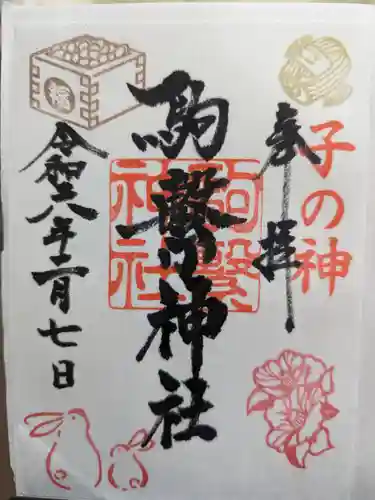 子の神
奉拝
駒繋神社
駒繋神社
令和六年二月七日
福